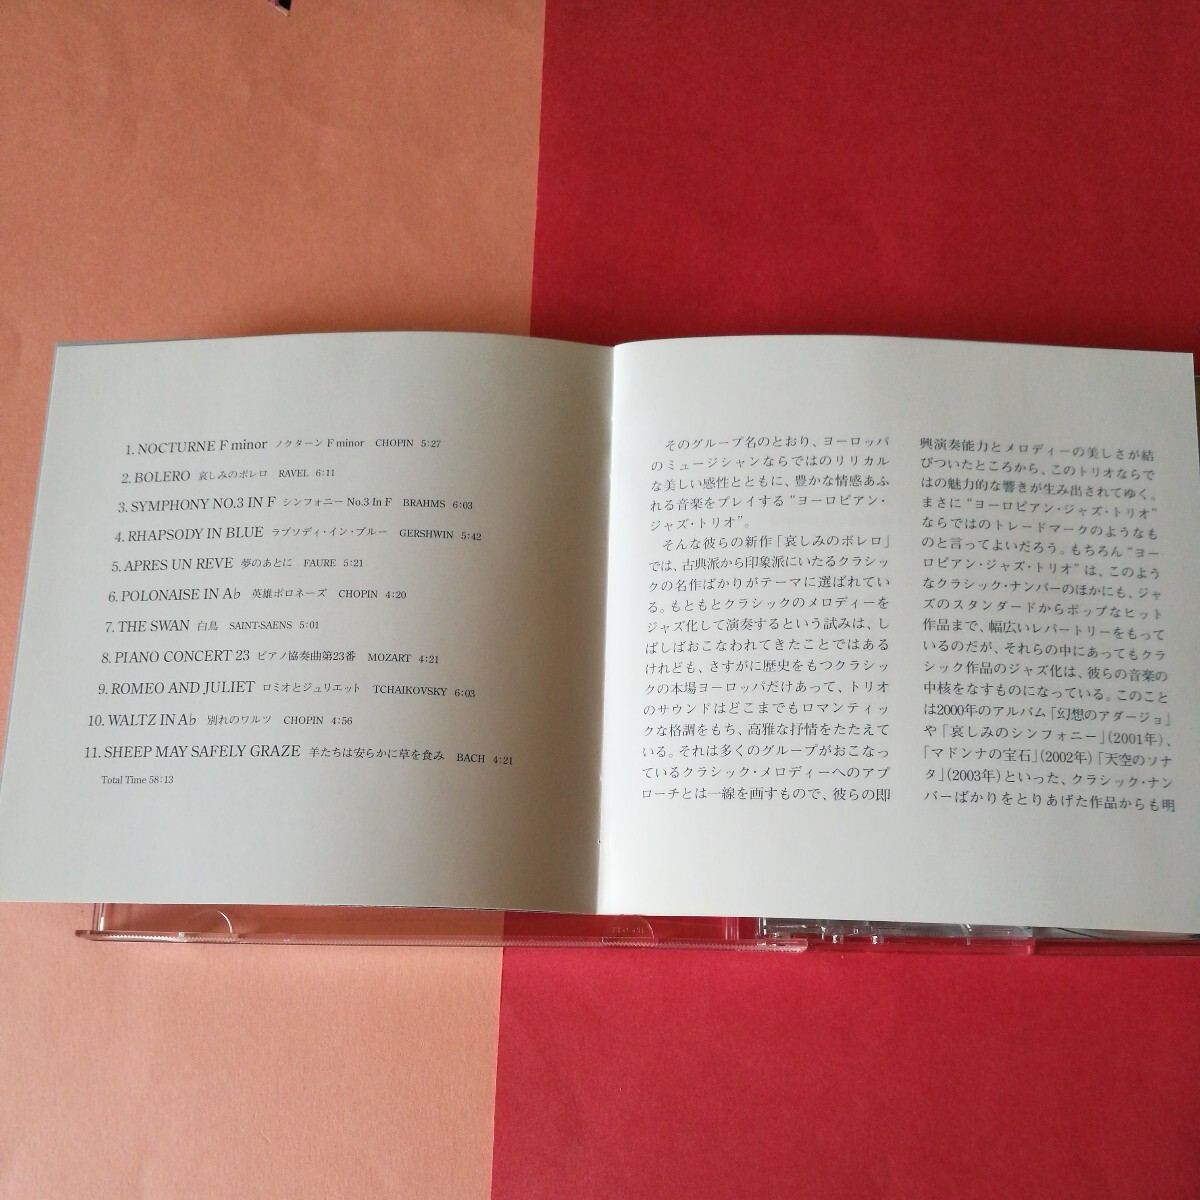 1. NOCTURNE F minor ノクターン F minor CHOPIN 5:27
2. BOLERO 哀しみのボレロ RAVEL 6:11
3. SYMPHONY NO.3 IN F シンフォニー No.3 In F BRAHMS 6:03
4. RHAPSODY IN BLUE ラプソディ・イン・ブルー GERSHWIN 5:42
5. APRES UN REVE 夢のあとに FAURE 5:21
6. POLONAISE IN A♭ 英雄ポロネーズ CHOPIN 4:20
7. THE SWAN 白鳥 SAINT-SAENS 5:01
8. PIANO CONCERT 23 ピアノ協奏曲第23番 MOZART 4:21
9. ROMEO AND JULIET ロミオとジュリエット TCHAIKOVSKY 6:03
10. WALTZ IN A♭ 別れのワルツ CHOPIN 4:56
11. SHEEP MAY SAFELY GRAZE 羊たちは安らかに草を食み BACH 4:21
Total Time 58:13
そのグループ名のとおり、ヨーロッパ
のミュージシャンならではのリリカル
な美しい感性とともに、豊かな情感あふ
れる音楽をプレイする“ヨーロピアン・
ジャズ・トリオ”。
そんな彼らの新作「哀しみのボレロ」
では、古典派から印象派にいたるクラシッ
クの名作ばかりがテーマに選ばれてい
る。もともとクラシックのメロディーを
ジャズ化して演奏するという試みは、し
ばしばおこなわれてきたことではある
けれども、さすがに歴史をもつクラシッ
クの本場ヨーロッパだけあって、トリオ
のサウンドはどこまでもロマンティッ
クな格調をもち、高雅な抒情をたたえて
いる。それは多くのグループがおこなっ
ているクラシック・メロディーへのアプ
ローチとは一線を画すもので、彼らの即
興演奏能力とメロディーの美しさが結
びついたところから、このトリオならで
はの魅力的な響きが生み出されてゆく。
まさに“ヨーロピアン・ジャズ・トリオ”
ならではのトレードマークのようなも
のと言ってよいだろう。もちろん“ヨー
ロピアン・ジャズ・トリオ”は、このよう
なクラシック・ナンバーのほかにも、ジャ
ズのスタンダードからポップなヒット
作品まで、幅広いレパートリーをもって
いるのだが、それらの中にあってもクラ
シック作品のジャズ化は、彼らの音楽の
中核をなすものになっている。このこと
は2000年のアルバム「幻想のアダージョ」
や「哀しみのシンフォニー」(2001年)、
「マドンナの宝石」(2002年)「天空のソナ
タ」(2003年)といった、クラシック・ナン
バーばかりをとりあげた作品からも明